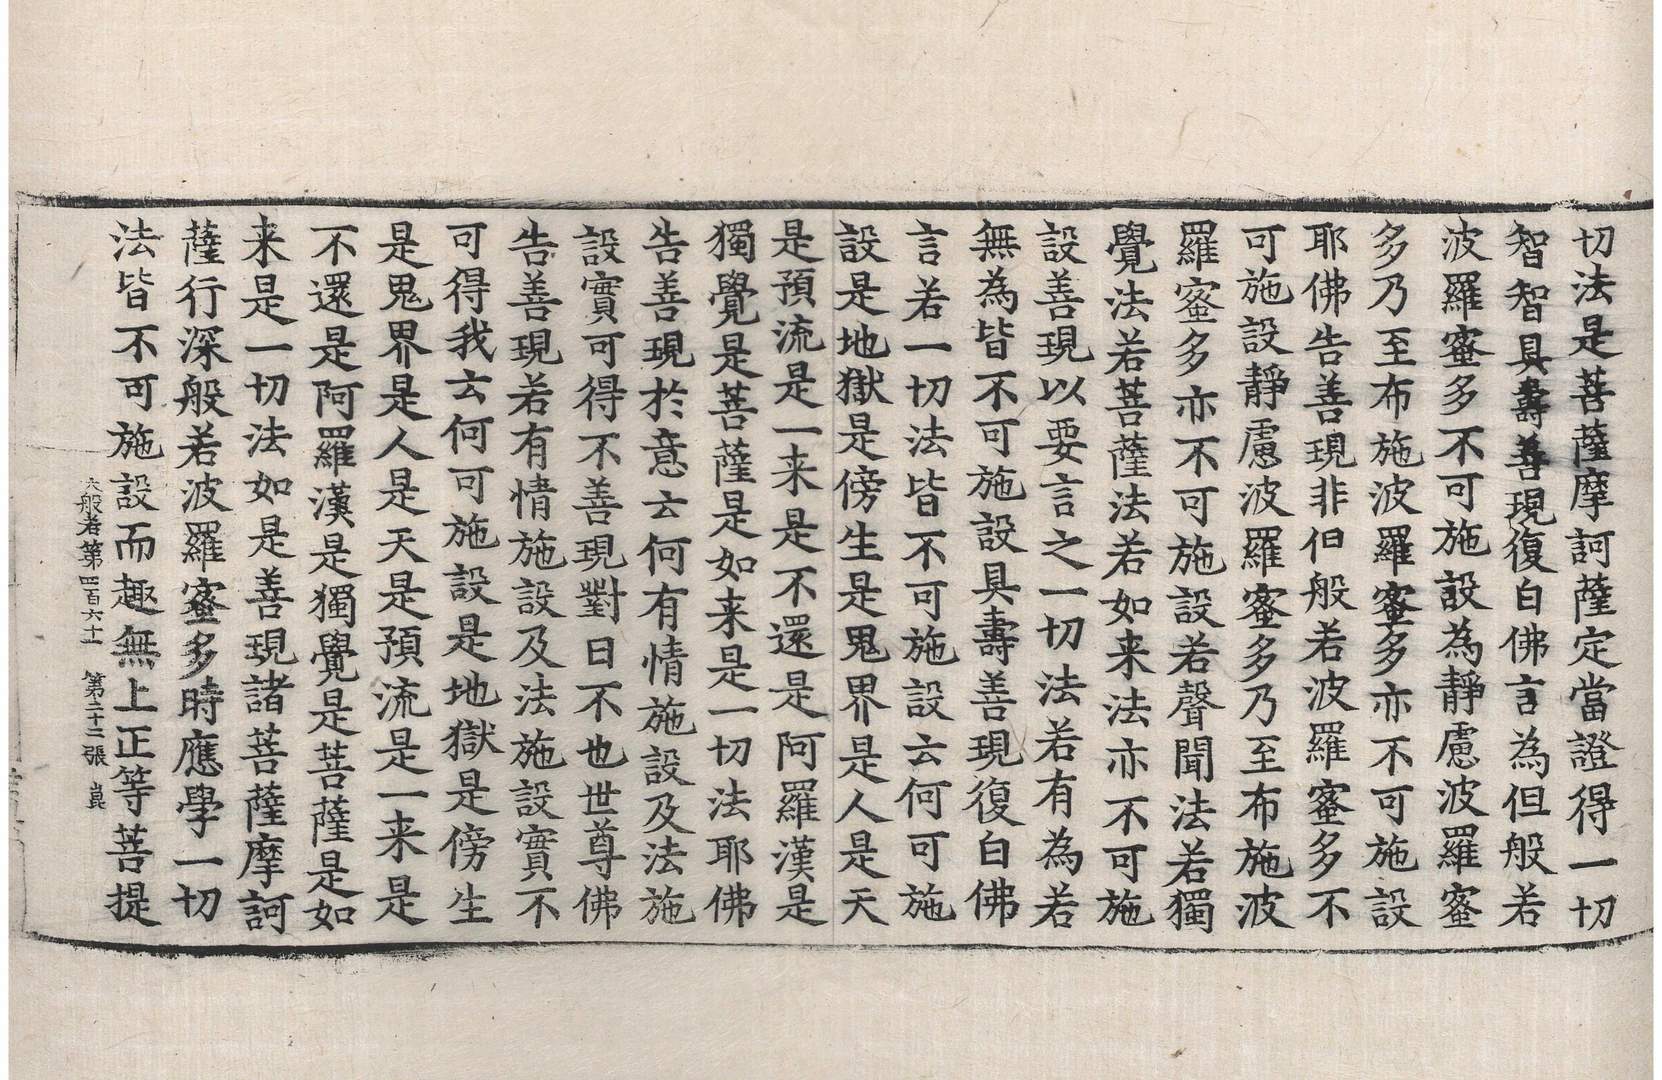 切法是菩薩摩訶薩定當證得一切
智智具壽善現復白佛言為但般若
波羅蜜多不可施設為靜慮波羅蜜
多乃至布施波羅蜜多亦不可施設
耶佛告善現非但般若波羅蜜多不
可施設靜慮波羅蜜多乃至布施波
羅蜜多亦不可施設若聲聞法若獨
覺法若菩薩法若如来法亦不可施
設善現以要言之一切法若有為若
無為皆不可施設具壽善現復白佛
言若一切法皆不可施設云何可施
設是地獄是傍生是鬼界是人是天
是預流是一来是不還是阿羅漢是
獨覺是菩薩是如来是一切法耶佛
告善現於意云何有情施設及法施
設實可得不善現對曰不也世尊佛
告善現若有情施設及法施設實不
可得我云何可施設是地獄是傍生
是鬼界是人是天是預流是一来是
不還是阿羅漢是獨覺是菩薩是如
来是一切法如是善現諸菩薩摩訶
薩行深般若波羅蜜多時應學一切
法皆不可施設而趣無上正等菩提
般若第四百六十一 第二十三張